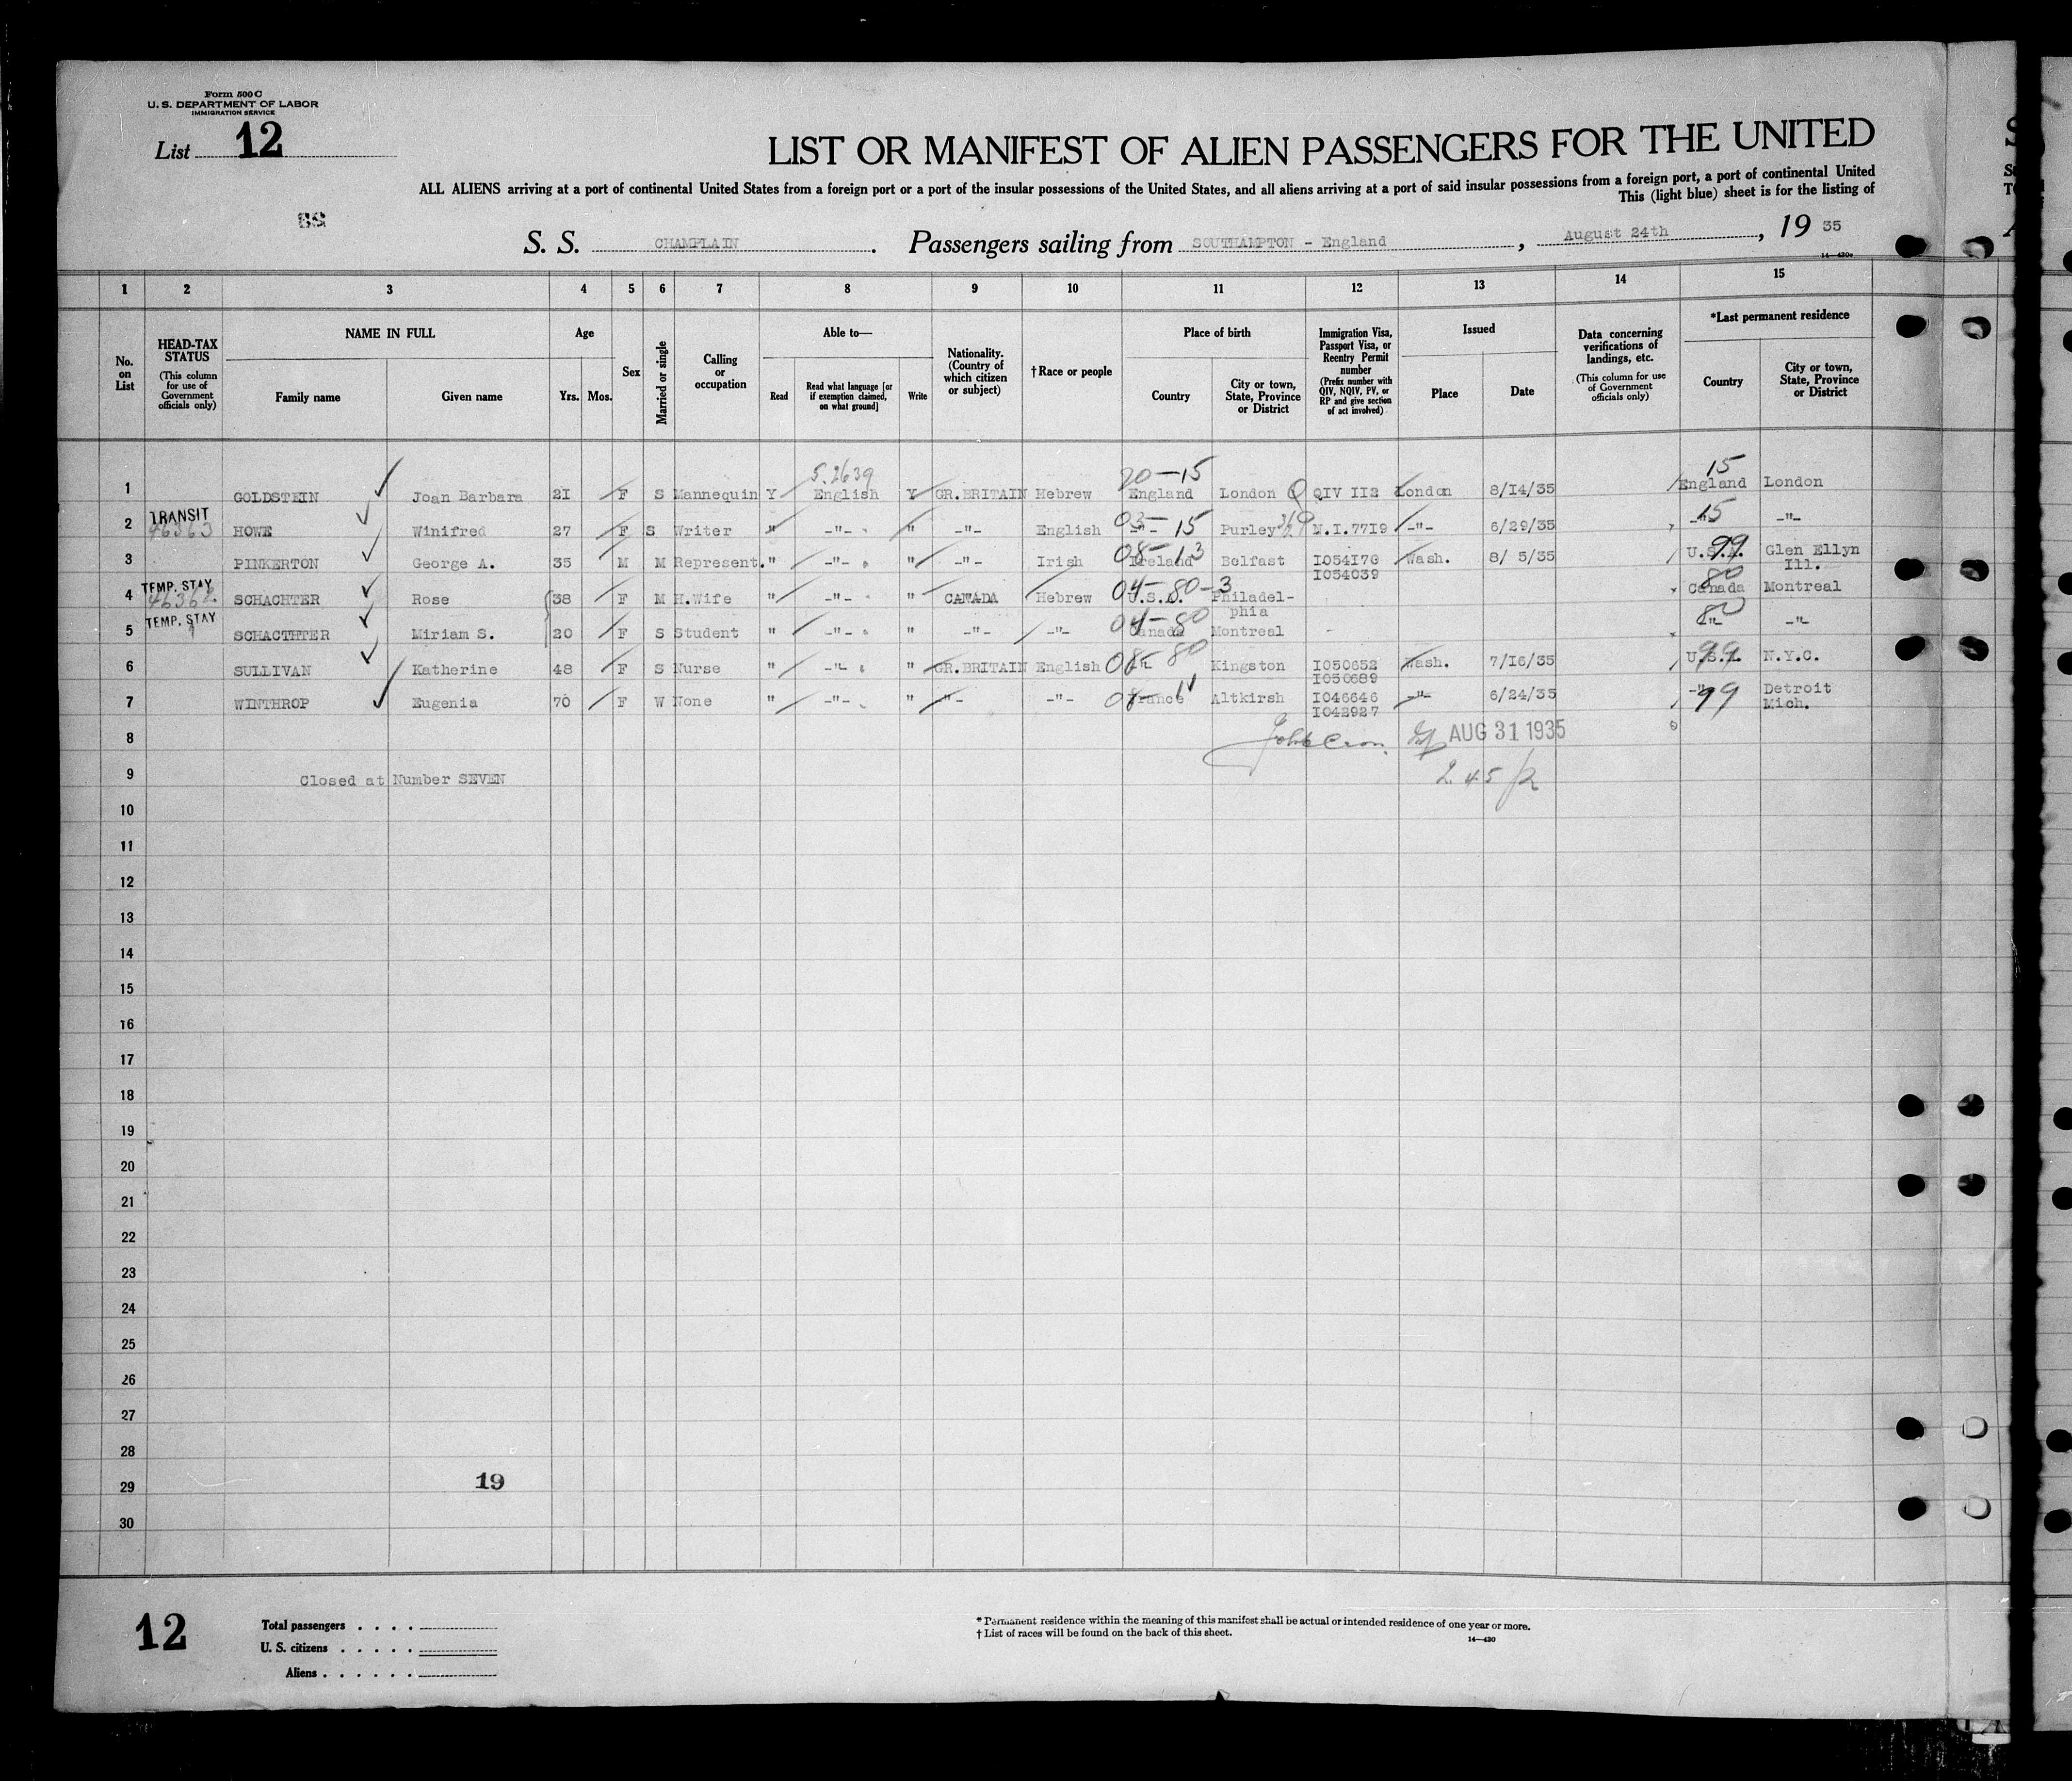 Form 500 C
U. S. DEPARTMENT OF LABOR
IMMIGRATION SERVICE
List 12
LIST OR MANIFEST OF ALIEN PASSENGERS FOR THE UNITED
ALL ALIENS arriving at a port of continental United States from a foreign port or a port of the insular possessions of the United States, and all aliens arriving at a port of said insular possessions from a foreign port, a port of continental United
This (light blue) sheet is for the listing of
S. S. CHAMPLAIN. Passengers sailing from SOUTHAMPTON - England, August 24th, 19 35
14—430c
1 2 3 4 5 6 7 8 9 10 11 12 13 14 15
No. on List
HEAD-TAX STATUS (This column for use of Government officials only)
NAME IN FULL Family name Given name
Age Yrs. Mos.
Sex
Married or single
Calling or occupation
Able to— Read Read what language [or if exemption claimed, on what ground] Write
Nationality. (Country of which citizen or subject)
†Race or people
Place of birth Country City or town, State, Province or District
Immigration Visa, Passport Visa, or Reentry Permit number (Prefix number with QIV, NQIV, PV, or RP and give section of act involved)
Issued Place Date
Data concerning verifications of landings, etc. (This column for use of Government officials only)
*Last permanent residence Country City or town, State, Province or District
5.2639 20-15 15
1 GOLDSTEIN Joan Barbara 21 F S Mannequin Y English Y GR.BRITAIN Hebrew England London QIV II2 London 8/14/35 England London
TRANSIT
2 46363 HOWE Winifred 27 F S Writer " -"- " -"- English 03-15 -"- Purley N.I.7719 -"- 6/29/35 15 -"- -"-
3 PINKERTON George A. 35 M M Represent. " -"- " -"- Irish 08-13 Ireland Belfast I054170 Wash. 8/ 5/35 99 U.S.A. Glen Ellyn
I054039 Ill.
TEMP. STAY
4 46362 SCHACHTER Rose 38 F M H.Wife " -"- " CANADA Hebrew 04-80-3 U.S.A. Philadel-
phia 80 Canada Montreal
TEMP. STAY
5 SCHACTHTER Miriam S. 20 F S Student " -"- " -"- -"- 04-80 Canada Montreal - 80 -"- -"-
6 SULLIVAN Katherine 48 F S Nurse " -"- " GR.BRITAIN English 08-80 -"- Kingston I050652 Wash. 7/16/35 99 U.S.A. N.Y.C.
I050689
7 WINTHROP Eugenia 70 F W None " -"- " -"- -"- France Altkirsh I046646 -"- 6/24/35 99 -"- Detroit
I042927 Mich.
8 AUG 31 1935
9 Closed at Number SEVEN 2.45
10
11
12
13
14
15
16
17
18
19
20
21
22
23
24
25
26
27
28
29 19
30
12
Total passengers
U. S. citizens
Aliens
* Permanent residence within the meaning of this manifest shall be actual or intended residence of one year or more.
† List of races will be found on the back of this sheet.
14—430